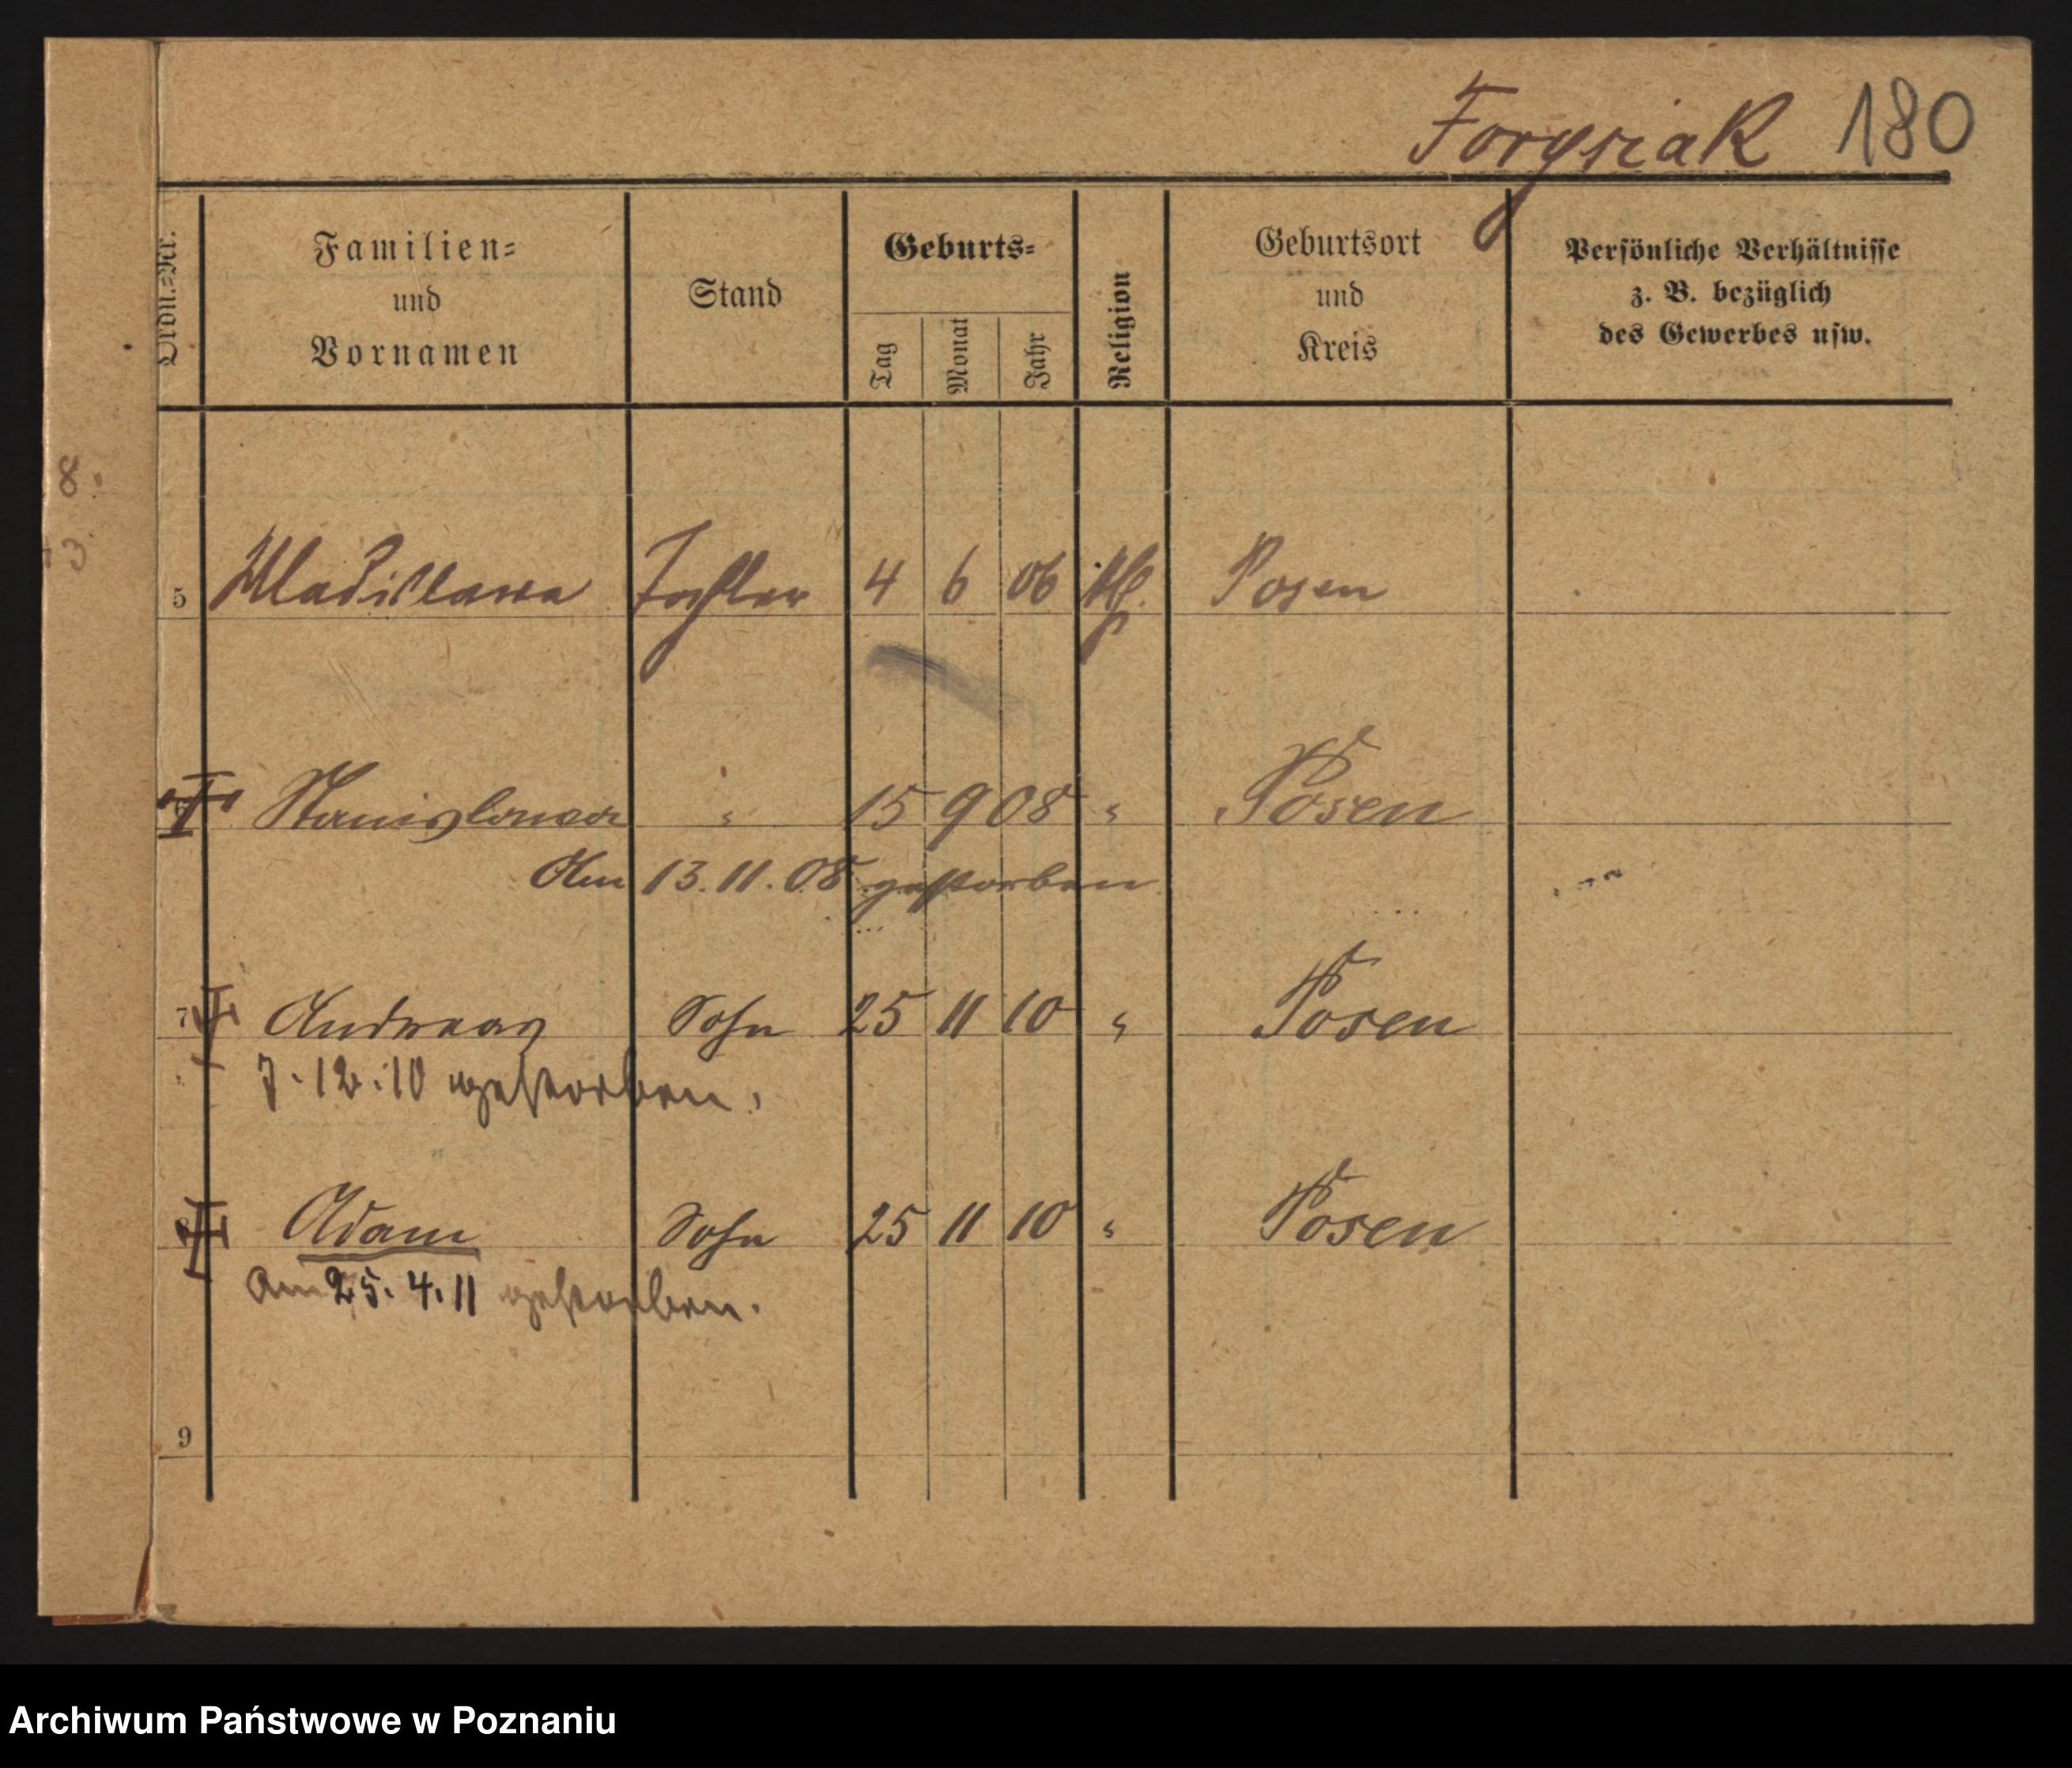 Forysiak 180
Ordn.-Nr.
Familien-
und
Vornamen
Stand
Geburts-
Tag
Monat
Jahr
Religion
Geburtsort
und
Kreis
Persönliche Verhältnisse
z. B. bezüglich
des Gewerbes usw.
8.
3.
5 Wladislawa Tochter 4 6 06 kth. Posen
Stanislawa " 15 9 08 " Posen
Am 13.11.08 gestorben
7 Andreas Sohn 25 11 10 " Posen
7.12.10 gestorben.
Adam Sohn 25 11 10 " Posen
am 25.4.11 gestorben.
9
Archiwum Państwowe w Poznaniu